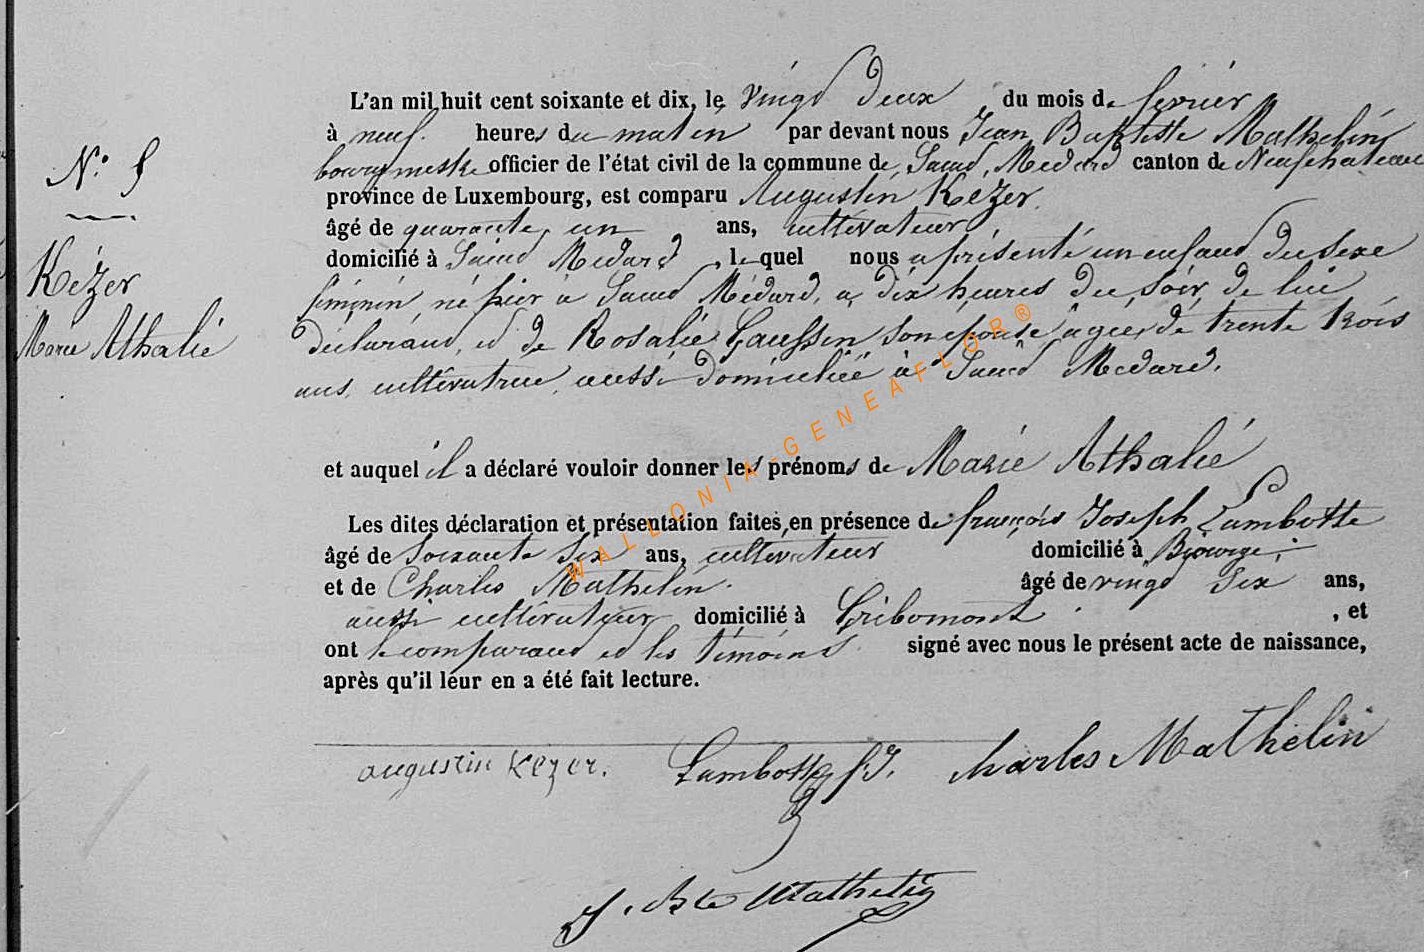 L'an mil huit cent soixante et dix, le vingt deux, du mois de février
à neuf heures du matin par devant nous Jean Baptiste Mathelin
bourgmestre officier de l'état civil de la commune de Saint Médard canton de Neufchateau
province de Luxembourg, est comparu Augustin Kezer
âgé de quarante un ans, cultivateur
domicilié à Saint Médard, lequel nous a présenté un enfant du sexe
féminin, né hier à Saint Médard, à dix heures du soir, de lui
déclarant, et de Rosalie Gaussin son épouse âgée de trente trois
ans, cultivatrice, aussi domiciliée à Saint Médard.
et auquel il a déclaré vouloir donner les prénoms de Marie Athalie
Les dites déclaration et présentation faites en présence de françois Joseph Lambotte
âgé de soixante six ans, cultivateur domicilié à Biourge;
et de Charles Mathelin. âgé de vingt six ans,
aussi cultivateur domicilié à Gribomont, et
ont le comparant et les témoins signé avec nous le présent acte de naissance,
après qu'il leur en a été fait lecture.
N°
Kézer
Marie Athalie
augustin Kezer. Lambotte fJ. Charles Mathelin
J. Bte Mathelin
WALLONIA-GENEAFLOR®